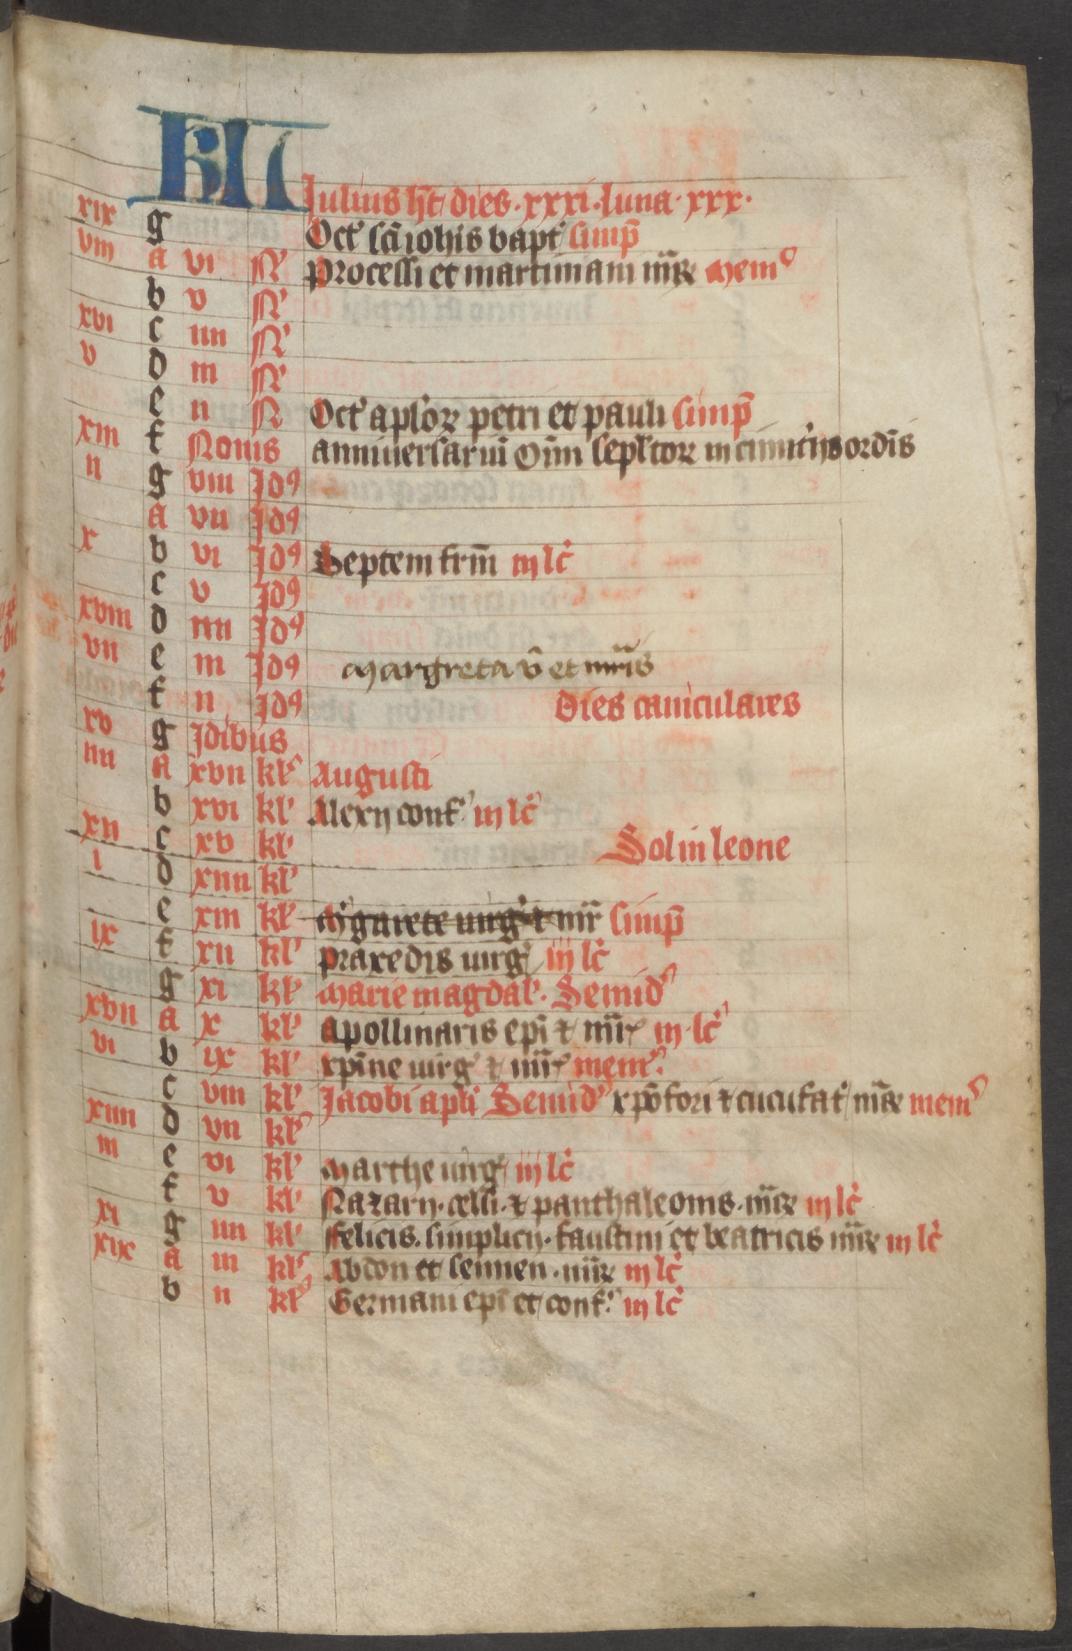 KL
Julius ht dies · xxxi · luna · xxx ·
xix g Oct sci iohis bapt simp
viii a vi N Processi et martiniani mr mem
b v N
xvi c iiii N
v d iii N
e ii N Oct aplor petri et pauli simp
xiii f Nonis anniversariu oim sepltor in cimitijs ordis
ii g viii Id
a vii Id
x b vi Id Septem frm iij lc
c v Id
xviii d iiii Id
vii e iii Id Margreta v et mris
f ii Id Dies caniculares
xv g Idibus
iiii a xvii kl Augusti
b xvi kl Alexij conf iij lc
xii c xv kl Sol in leone
i d xiiii kl
e xiii kl Mgarete virg et mr simp
ix f xii kl praxedis virg iij lc
g xi kl Marie magdal · Semid
xvii a x kl apollinaris epi et mr iij lc
vi b ix kl xpine virg et mr mem
c viii kl Jacobi apli Semid xpofori et cucufat mr mem
xiiii d vii kl
iii e vi kl Marthe virg iij lc
f v kl Nazarij · celsi · et panthaleonis · mr iij lc
xi g iiii kl ffelicis · simplicij · faustini et beatricis mr iij lc
xix a iii kl Abdon et sennen · mr iij lc
b ii kl Germani epi et conf iij lc